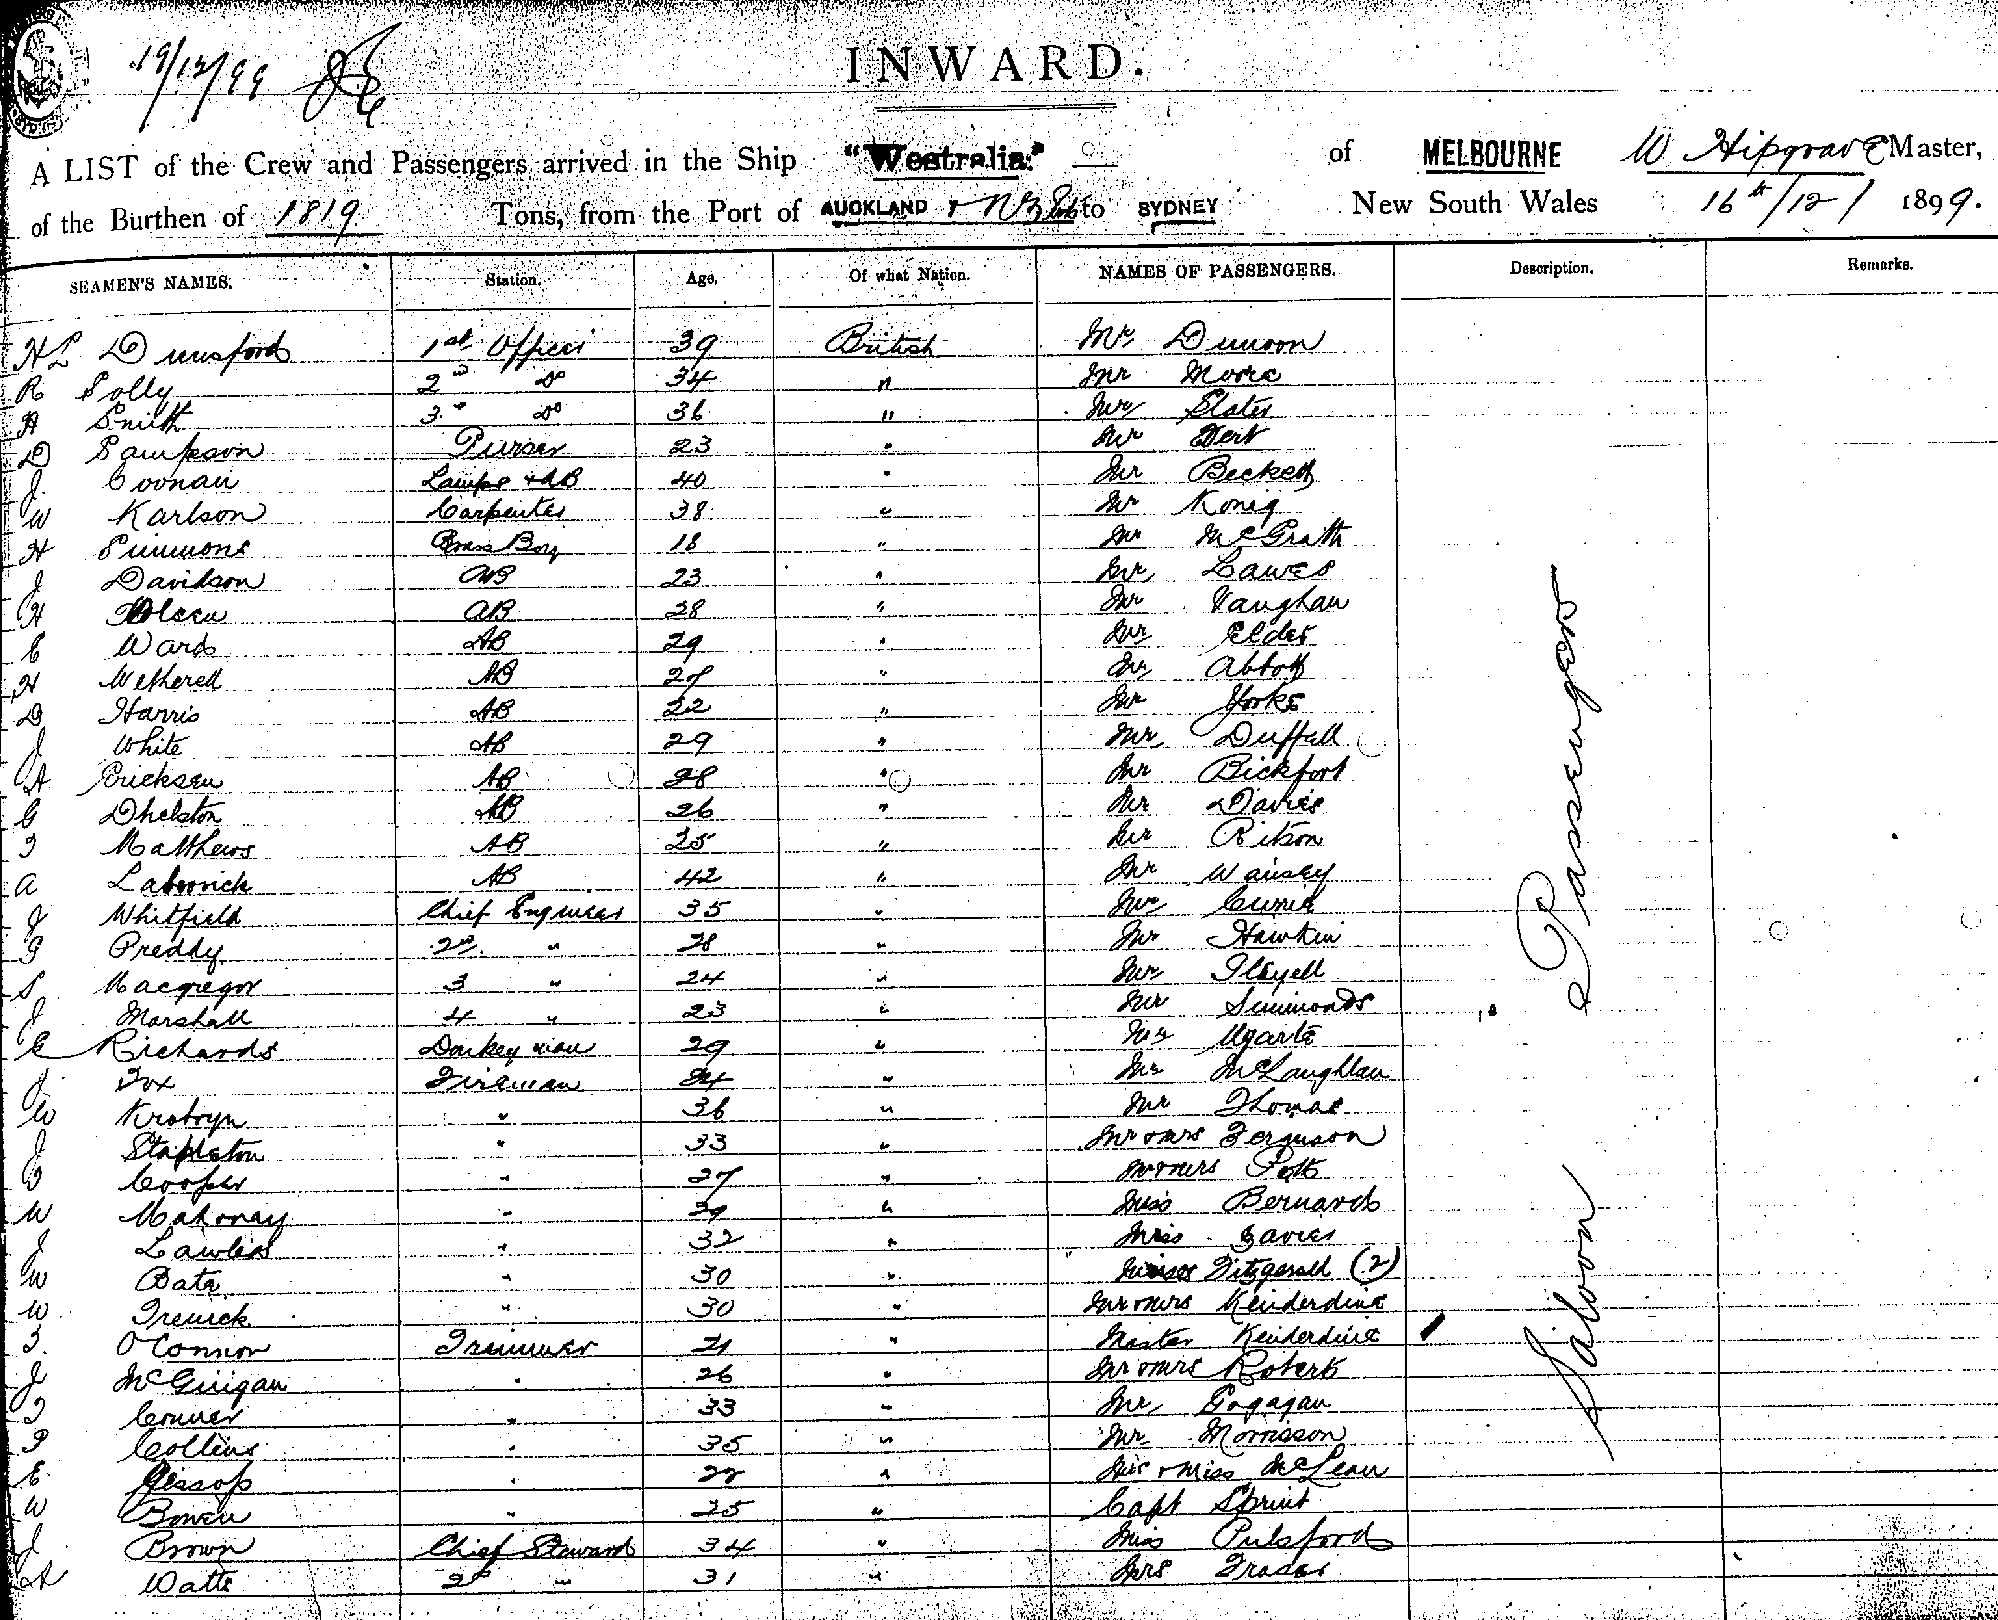 19/12/99
INWARD.
A LIST of the Crew and Passengers arrived in the Ship "Westralia." of MELBOURNE W Hipgrave Master,
of the Burthen of 1819 Tons, from the Port of AUCKLAND & to SYDNEY New South Wales 16th/12/ 1899.
SEAMEN'S NAMES. Station. Age. Of what Nation. NAMES OF PASSENGERS. Description. Remarks.
HL Dunsford 1st Officer 39 British Mr Dunoon
R Solly 2nd Do 34 " Mr Moore
A Smith 3rd Do 36 " Mr Slater
D Sampson Purser 23 " Mr Dert
J. Coonan Lamps & AB 40 " Mr Beckett
W Karlson Carpenter 38 " Mr Konig
H Simmons Brass Boy 18 " Mr McGrath
J Davidson AB 23 " Mr Lawes
H Olsen AB 28 " Mr Vaughan
C Ward AB 29 " Mr Elder
H Wetherell AB 27 " Mr Abbott
D Harris AB 22 " Mr Yorke
J White AB 29 " Mr Duffell
A Ericksen AB 28 " Mr Bickfort
G Dhelston AB 26 " Mr Davies
T Matthews AB 25 " Mr Ritson
A AB 42 " Mr Wansey
J Whitfield Chief Engineer 35 " Mr Currie
P Preddy 2nd " 28 " Mr Hawkin
S Macgregor 3 " 24 " Mr
J Marshall 4 " 23 " Mr Simmonds
C Richards Donkeyman 29 " Mr Ugarte
J. Fox Fireman 24 " Mr McLaughlan
W " 36 " Mr Thomas
J Stapleton " 33 " Mr & Mrs Ferguson
D Cooper " 27 " Mr & Mrs Potts
W Mahoney " 39 " Miss Bernard
J Lawless " 32 " Miss Davies
W Bate " 30 " Misses Fitzgerald (2)
W Trewick " 30 " Mr & Mrs Kenderdine
T. O'Connor Trimmer 21 " Master Kenderdine
J McGuigan " 26 " Mr & Mrs Roberts
T Conner " 33 " Mr Gogagan
P Collins " 35 " Mr Morrisson
E Jessop " 22 " Mr & Miss McLean
W Bowen " 25 " Capt Sprint
J Brown Chief Steward 34 " Miss Pulsford
A Watts 2nd " 31 " Mrs Fraser
Saloon Passengers